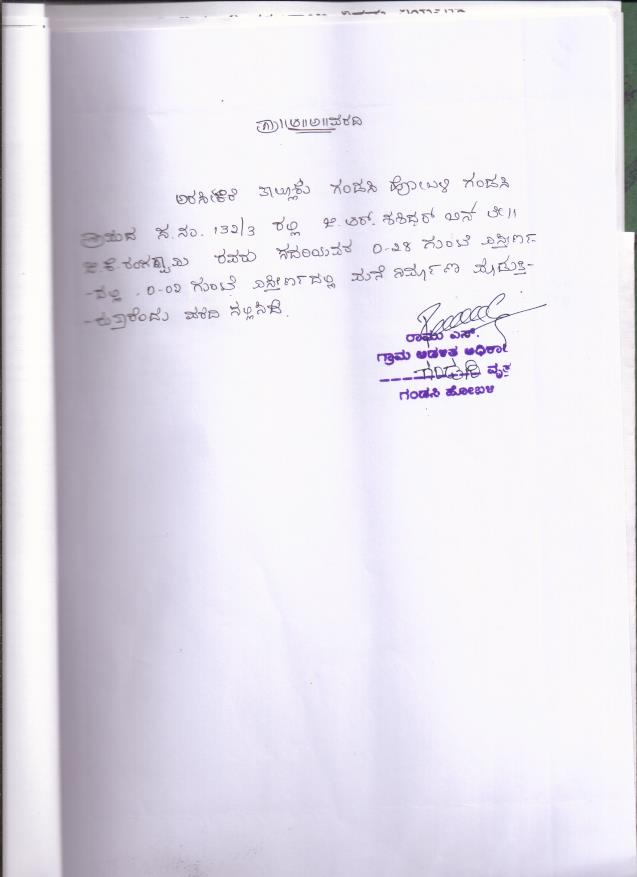 ಗ್ರಾ||ಆ||ಅ||ವರದಿ
ಅರಸೀಕೆರೆ ತಾಲ್ಲೂಕು ಗಂಡಸಿ ಹೋಬಳಿ ಗಂಡಸಿ
ಗ್ರಾಮದ ಸ.ನಂ. 132/3 ರಲ್ಲಿ ಜಿ.ಆರ್. ಶಶಿಧರ್ ಬಿನ್ ಲೇ||
ಜಿ.ಕೆ.ರಂಗಸ್ವಾಮಿ ರವರು ಸದರಿಯವರ 0-28 ಗುಂಟೆ ವಿಸ್ತೀರ್ಣ
-ದಲ್ಲಿ 0-02 ಗುಂಟೆ ವಿಸ್ತೀರ್ಣದಲ್ಲಿ ಮನೆ ನಿರ್ಮಾಣ ಮಾಡುತ್ತಿ-
-ರುತ್ತಾರೆಂದು ವರದಿ ಸಲ್ಲಿಸಿದೆ.
ರಾಮು ಎಸ್.
ಗ್ರಾಮ ಆಡಳಿತ ಅಧಿಕಾರಿ
ಗಂಡಸಿ ವೃತ್ತ
ಗಂಡಸಿ ಹೋಬಳಿ